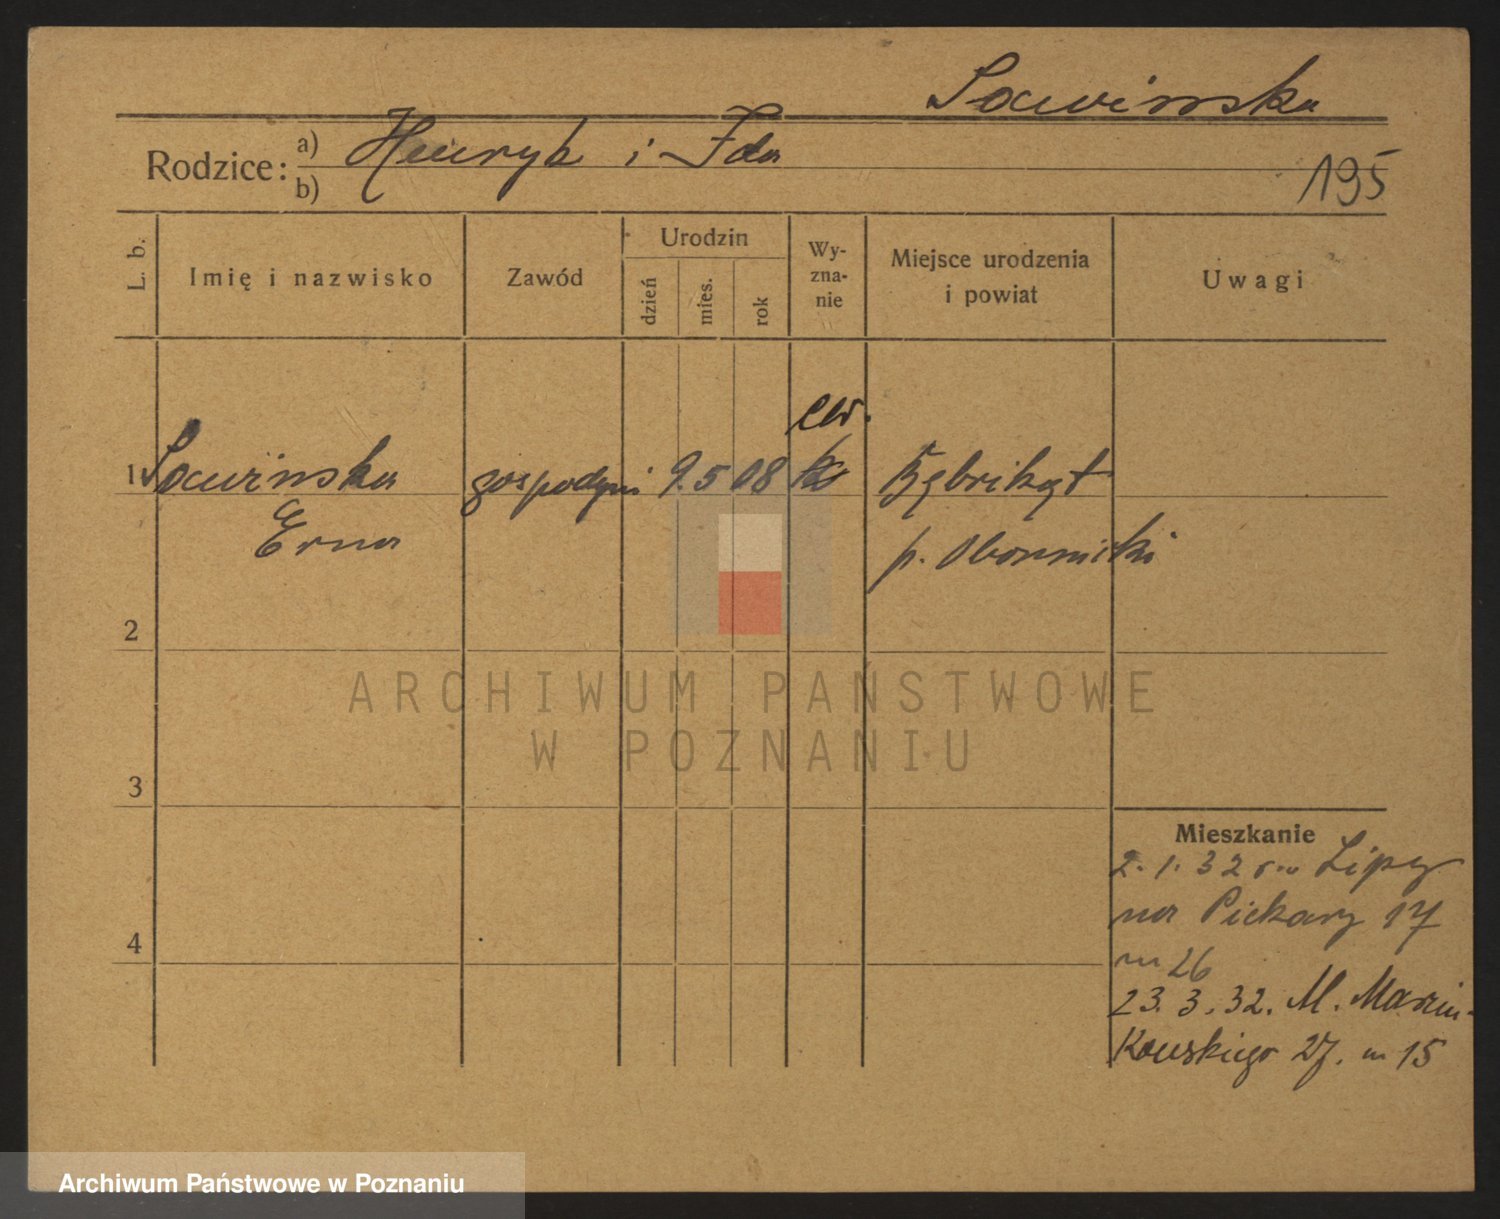 Sawinska
Rodzice: a) Henryk i Ida
b)
195
L. b.
Imię i nazwisko
Zawód
Urodzin
dzień
mies.
rok
Wy-
zna-
nie
Miejsce urodzenia
i powiat
Uwagi
ew.
1 Sawinska gospodyni 9. 5 08
Erna
p. Oborniki
2
3
4
Mieszkanie
2. 1. 32 Lipy
na Piekary 17
m 26
23. 3. 32. M. Marcin-
kowskiego 27. m 15
ARCHIWUM PAŃSTWOWE
W POZNANIU
Archiwum Państwowe w Poznaniu